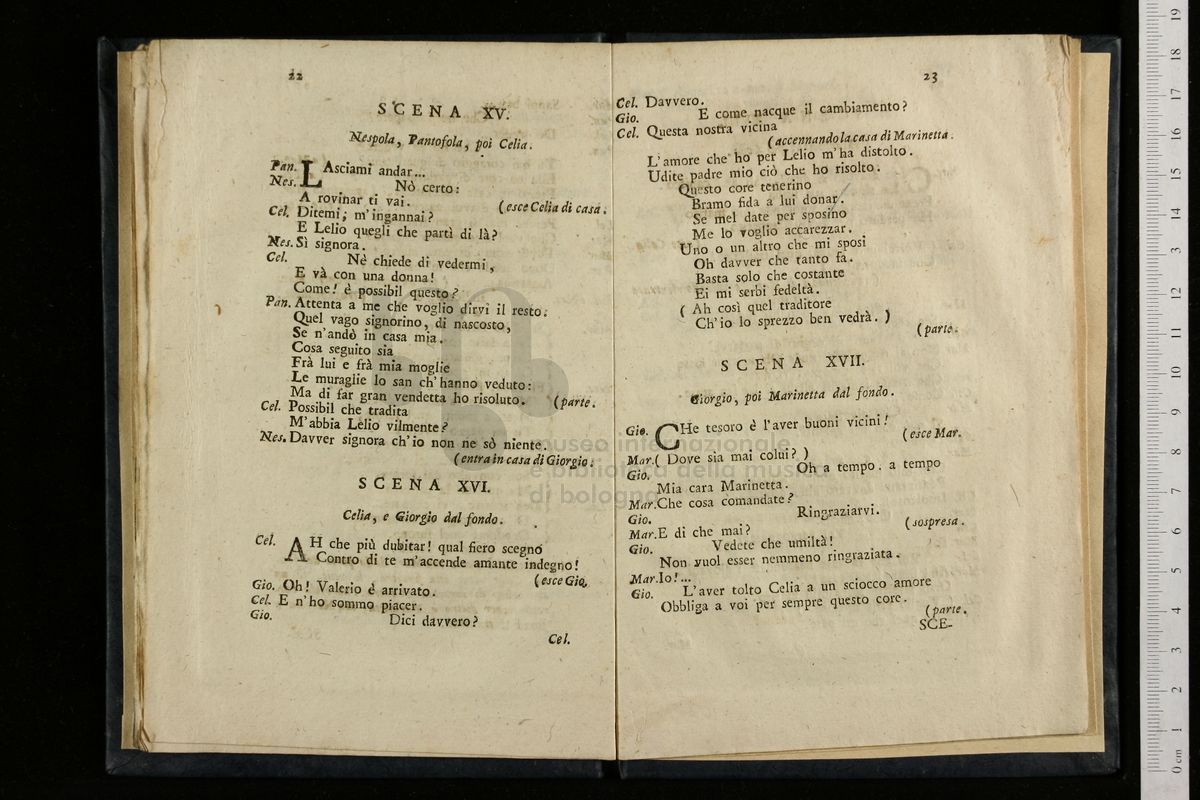 22
SCENA XV.
Nespola, Pantofola, poi Celia.
Pan. LAsciami andar...
Nes. Nò certo:
A rovinar ti vai. (esce Celia di casa.
Cel. Ditemi; m'ingannai?
E Lelio quegli che partì di là?
Nes. Sì signora.
Cel. Nè chiede di vedermi,
E và con una donna!
Come! è possibil questo?
Pan. Attenta a me che voglio dirvi il resto:
Quel vago signorino, di nascosto,
Se n'andò in casa mia.
Cosa seguito sia
Frà lui e frà mia moglie
Le muraglie lo san ch'hanno veduto:
Ma di far gran vendetta ho risoluto. (parte.
Cel. Possibil che tradita
M'abbia Lelio vilmente?
Nes. Davver signora ch'io non ne sò niente.
(entra in casa di Giorgio.
SCENA XVI.
Celia, e Giorgio dal fondo.
Cel. AH che più dubitar! qual fiero scegno
Contro di te m'accende amante indegno!
(esce Gio.
Gio. Oh! Valerio è arrivato.
Cel. E n'ho sommo piacer.
Gio. Dici davvero?
Cel.
23
Cel. Davvero.
Gio. E come nacque il cambiamento?
Cel. Questa nostra vicina
(accennando la casa di Marinetta.
L'amore che ho per Lelio m'ha distolto.
Udite padre mio ciò che ho risolto.
Questo core tenerino
Bramo fida a lui donar.
Se mel date per sposino
Me lo voglio accarezzar.
Uno o un altro che mi sposi
Oh davver che tanto fa.
Basta solo che costante
Ei mi serbi fedeltà.
( Ah così quel traditore
Ch'io lo sprezzo ben vedrà. )
(parte.
SCENA XVII.
Giorgio, poi Marinetta dal fondo.
Gio. CHe tesoro è l'aver buoni vicini!
(esce Mar.
Mar. ( Dove sia mai colui? )
Gio. Oh a tempo. a tempo
Mia cara Marinetta.
Mar. Che cosa comandate?
Gio. Ringraziarvi.
Mar. E di che mai? (sospresa.
Gio. Vedete che umiltà!
Non vuol esser nemmeno ringraziata.
Mar. Io!...
Gio. L'aver tolto Celia a un sciocco amore
Obbliga a voi per sempre questo core.
(parte.
SCE-
museo internazionale
e biblioteca della musica
di bologna
0 cm 1 2 3 4 5 6 7 8 9 10 11 12 13 14 15 16 17 18 19